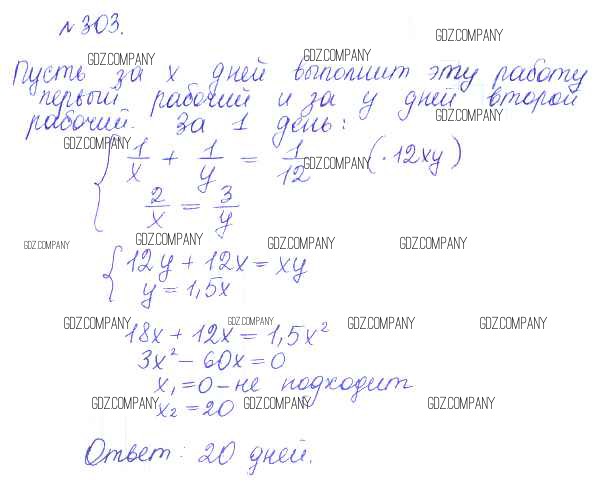 №303.
GDZ.COMPANY GDZ.COMPANY GDZ.COMPANY
Пусть за x дней выполнит эту работу
первый рабочий и за y дней второй
GDZ.COMPANY
рабочий. За 1 день:
GDZ.COMPANY GDZ.COMPANY
1/x + 1/y = 1/12 (·12xy)
2/x = 3/y
GDZ.COMPANY GDZ.COMPANY GDZ.COMPANY GDZ.COMPANY
12y + 12x = xy
y = 1,5x
GDZ.COMPANY GDZ.COMPANY GDZ.COMPANY GDZ.COMPANY
18x + 12x = 1,5x²
3x² - 60x = 0
x₁ = 0 - не подходит
x₂ = 20
GDZ.COMPANY GDZ.COMPANY GDZ.COMPANY
Ответ: 20 дней.